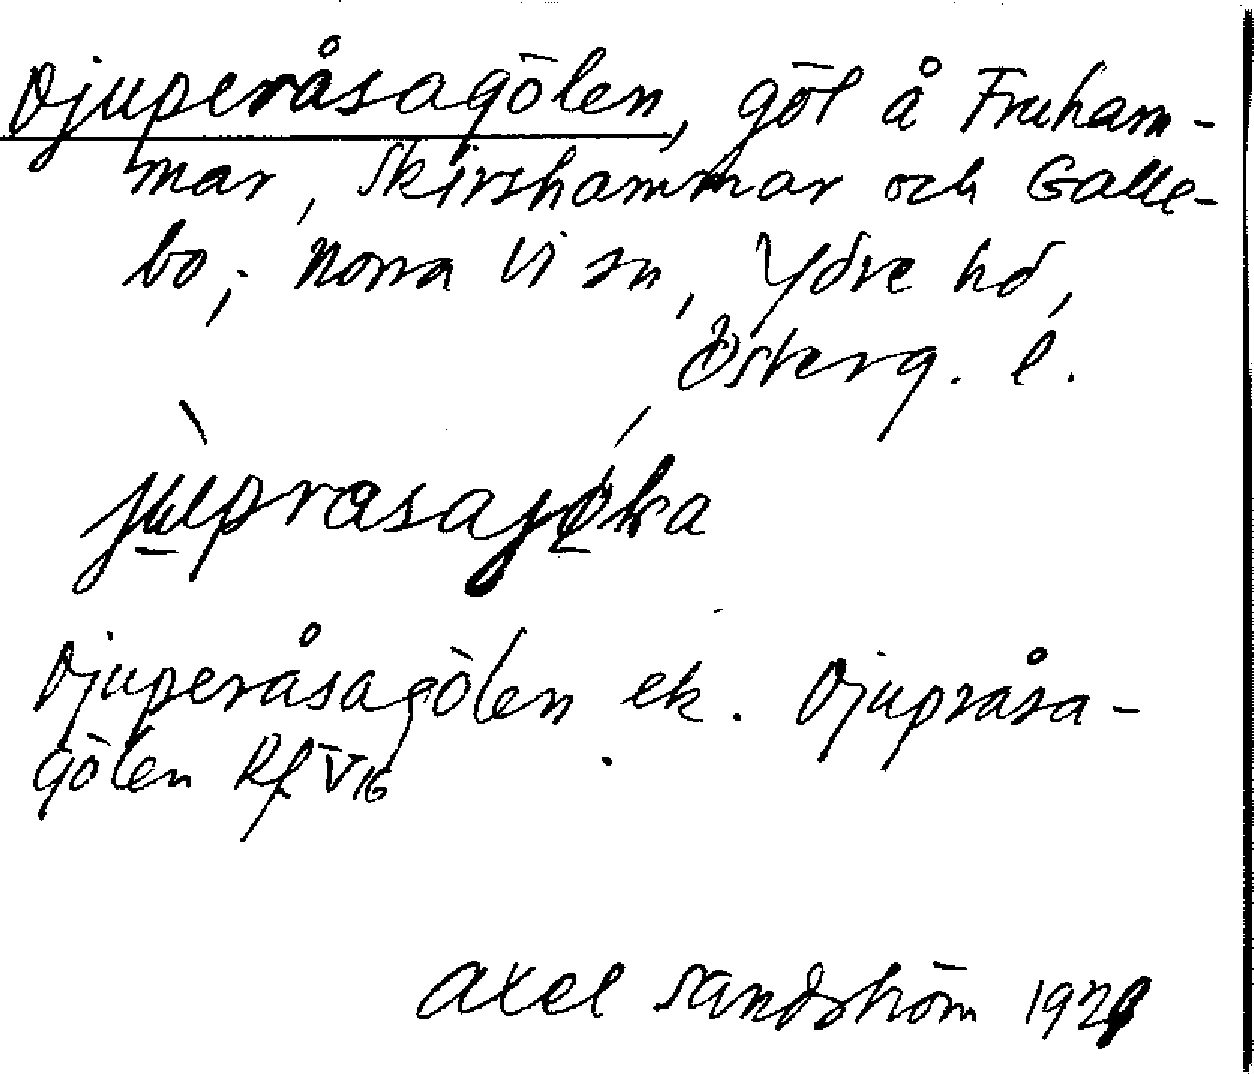 Djuperåsagölen, göl å Fruham-
mar, Skirshammar och Galle-
bo; Norra Vi sn, Ydre hd,
Österg. l.
Djuperåsagölen ek. Djupråsa-
gölen Rf V16
Axel Sandström